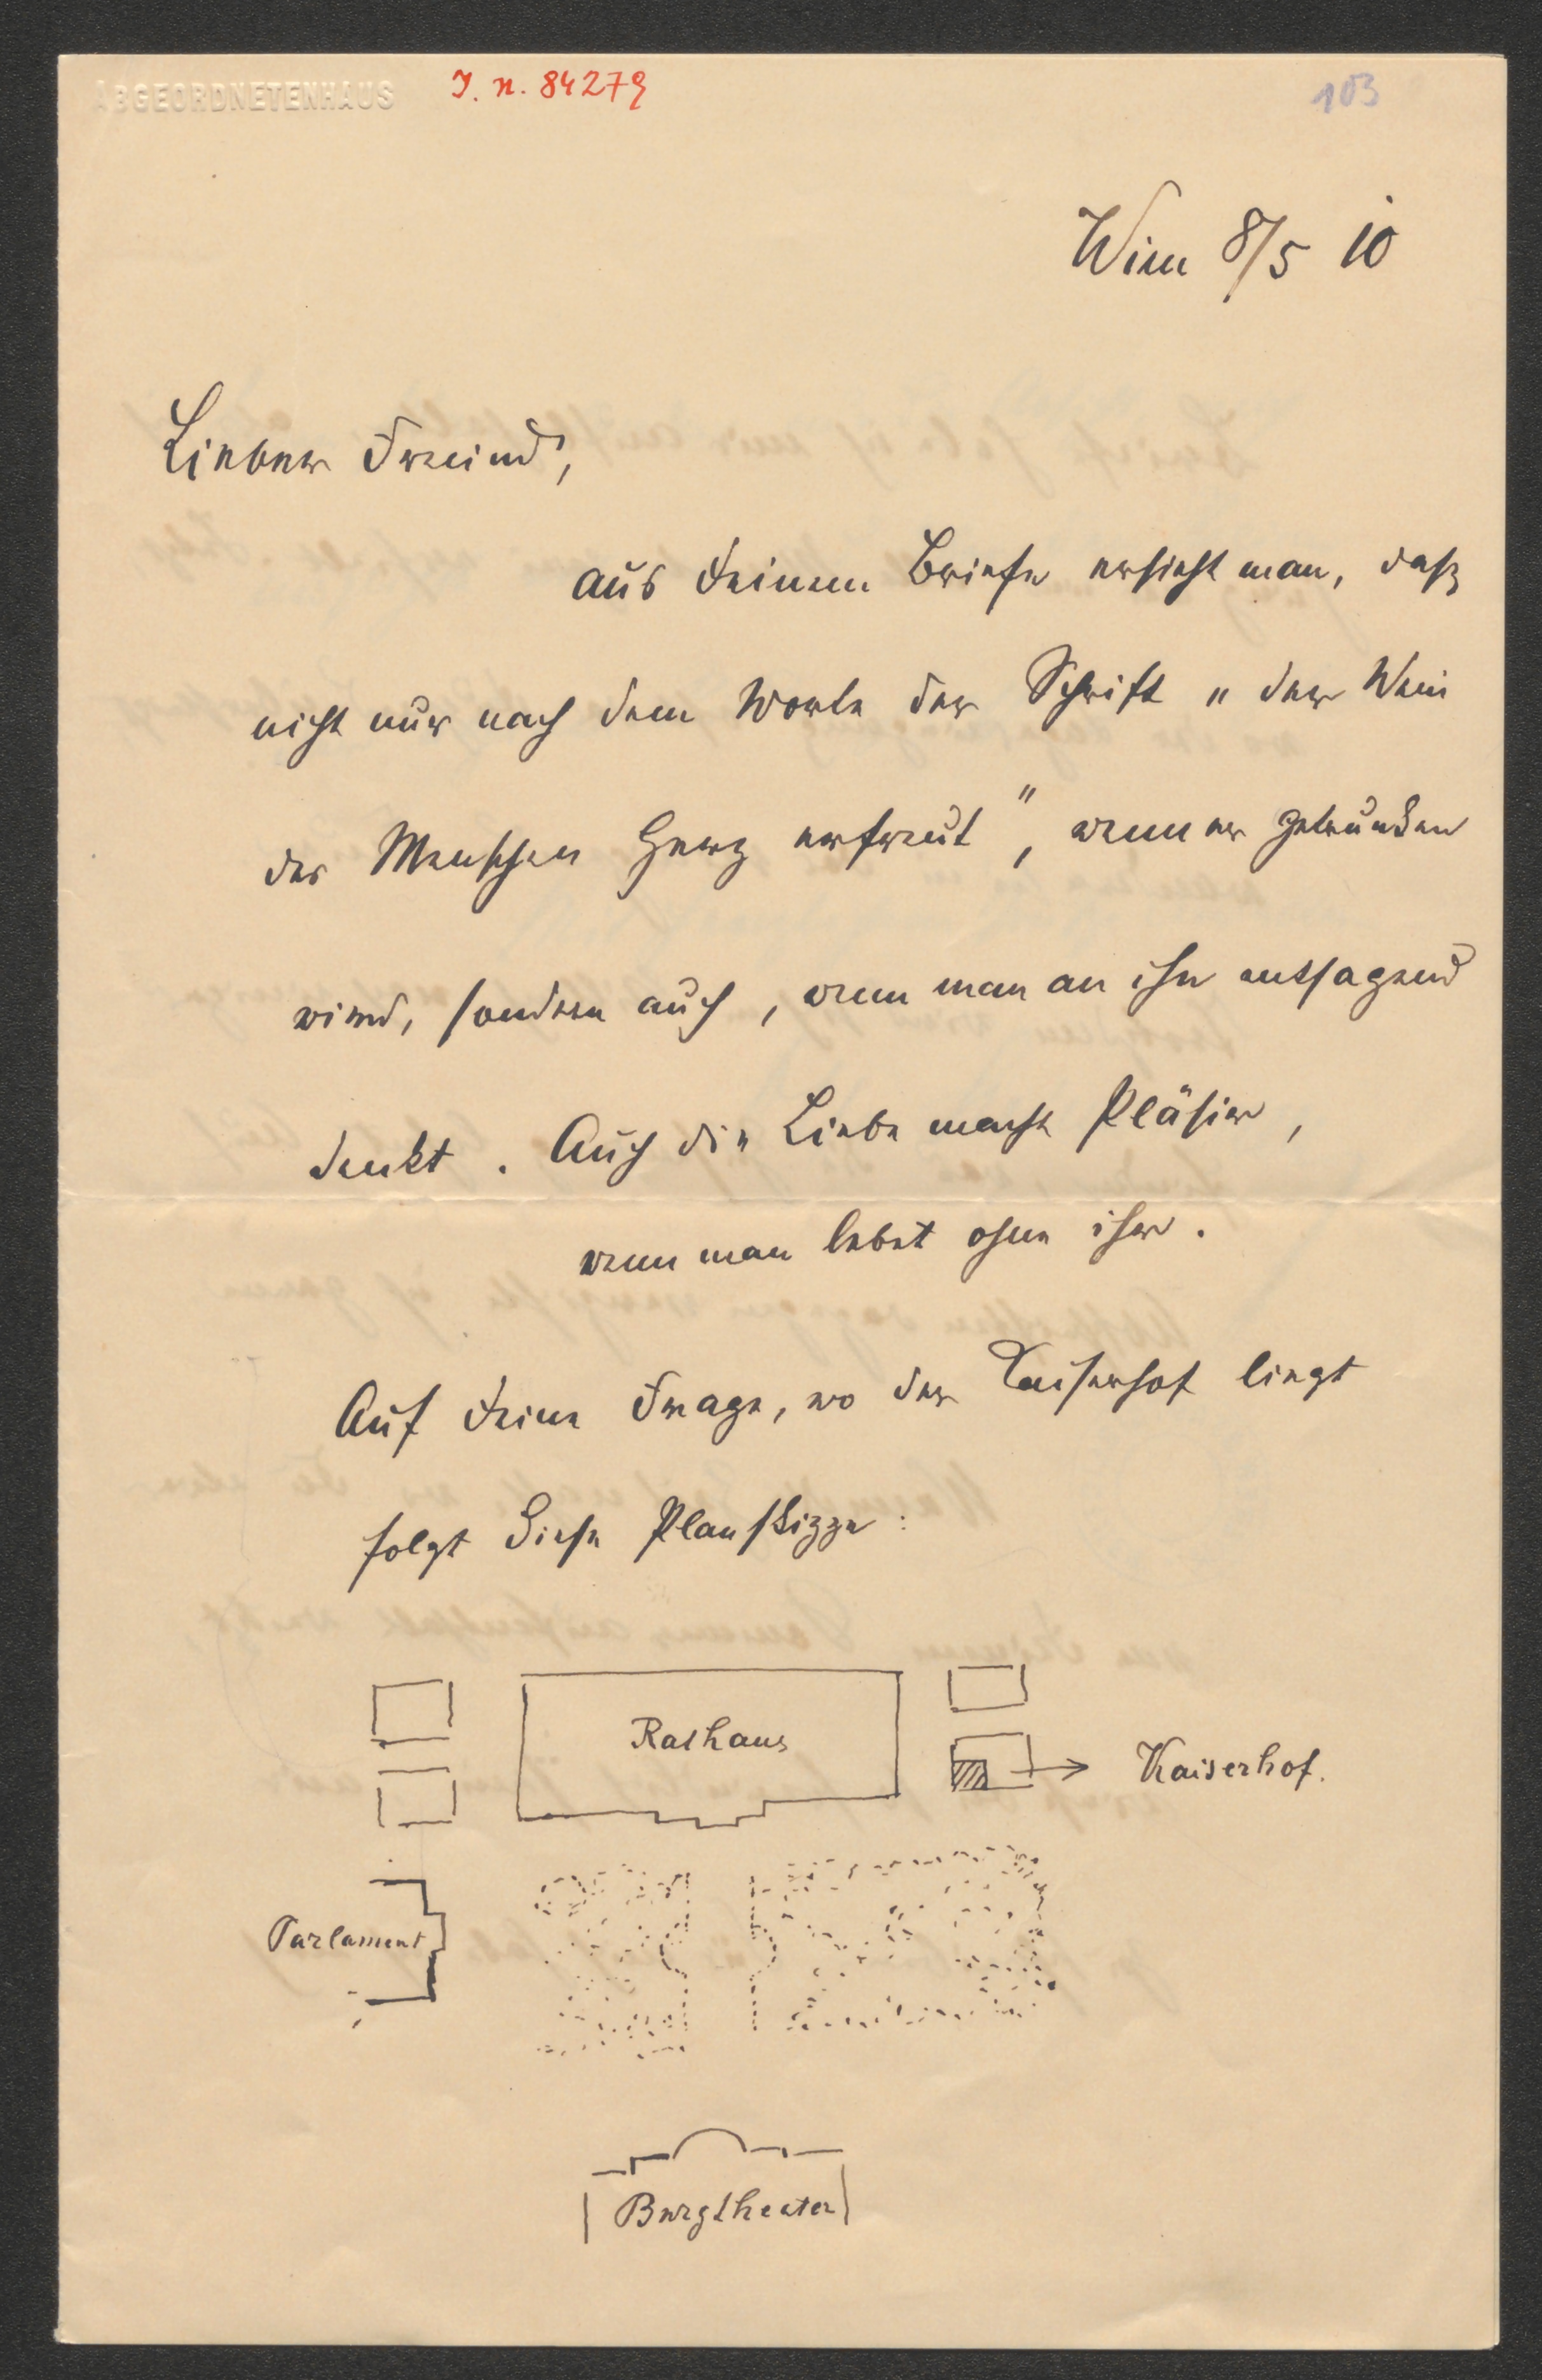 ABGEORDNETENHAUS
J. N. 84279
103
Wien 8/5 10
Lieber Freund,
aus Deinem Briefe ersieht man, daß
nicht nur nach dem Worte der Schrift „der Wein
des Menschen Herz erfreut", wenn er getrunken
wird, sondern auch, wenn man an ihn entsagend
denkt. Auch die Liebe macht Pläsier,
wenn man lebet ohne ihr.
Auf Deine Frage, wo der Kaiserhof liegt
folgt diese Planskizze:
Rathaus
Kaiserhof.
Parlament
Burgtheater